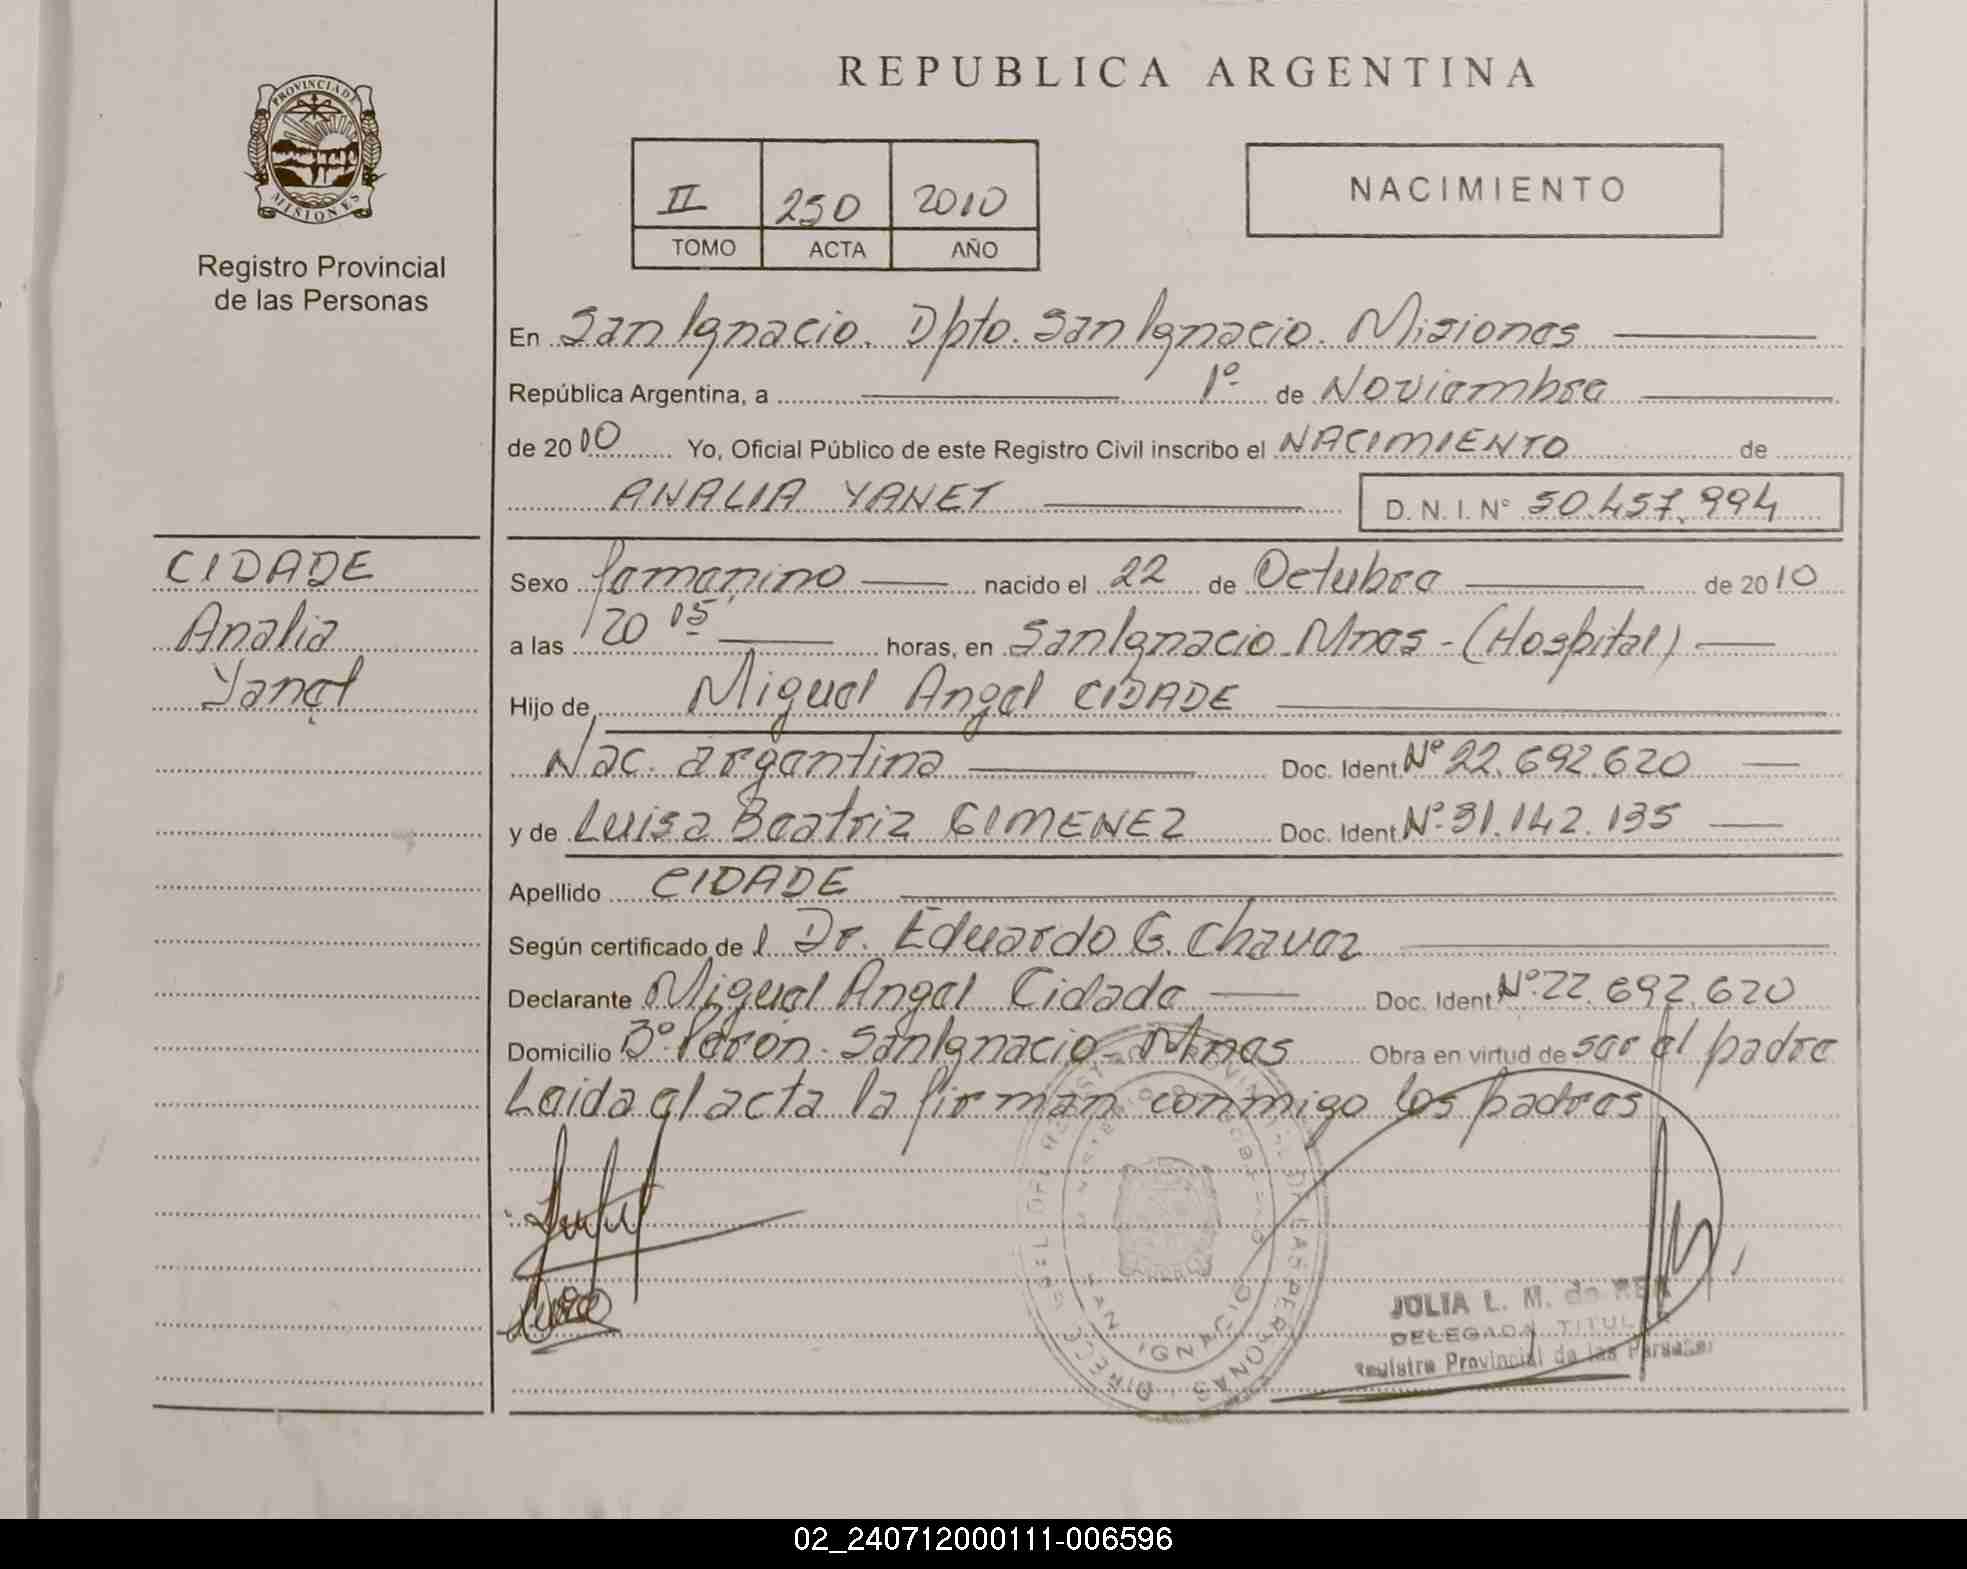 REPUBLICA ARGENTINA
PROVINCIA DE
MISIONES
Registro Provincial
de las Personas
II 250 2010
TOMO ACTA AÑO
NACIMIENTO
En San Ignacio. Dpto. San Ignacio. Misiones
República Argentina, a 1º de Noviembre
de 2010 Yo, Oficial Público de este Registro Civil inscribo el NACIMIENTO de
ANALIA YANET D. N. I. Nº 50.457.994
CIDADE
Analia
Yanet
Sexo femenino nacido el 22 de Octubre de 2010
a las 20 05 horas, en San Ignacio Mnes - (Hospital)
Hijo de Miguel Angel CIDADE
Nac. argentina Doc. Ident. Nº 22.692.620
y de Luisa Beatriz GIMENEZ Doc. Ident. Nº 31.142.135
Apellido CIDADE
Según certificado de l Dr. Eduardo G. Chavez
Declarante Miguel Angel Cidade Doc. Ident. Nº 22.692.620
Domicilio Bº Perón - San Ignacio - Mnes Obra en virtud de ser el padre
Leida el acta la firman conmigo los padres
SAN IGNACIO
JULIA L. M. de
DELEGADA TITULAR
Registro Provincial de las Personas
02_240712000111-006596